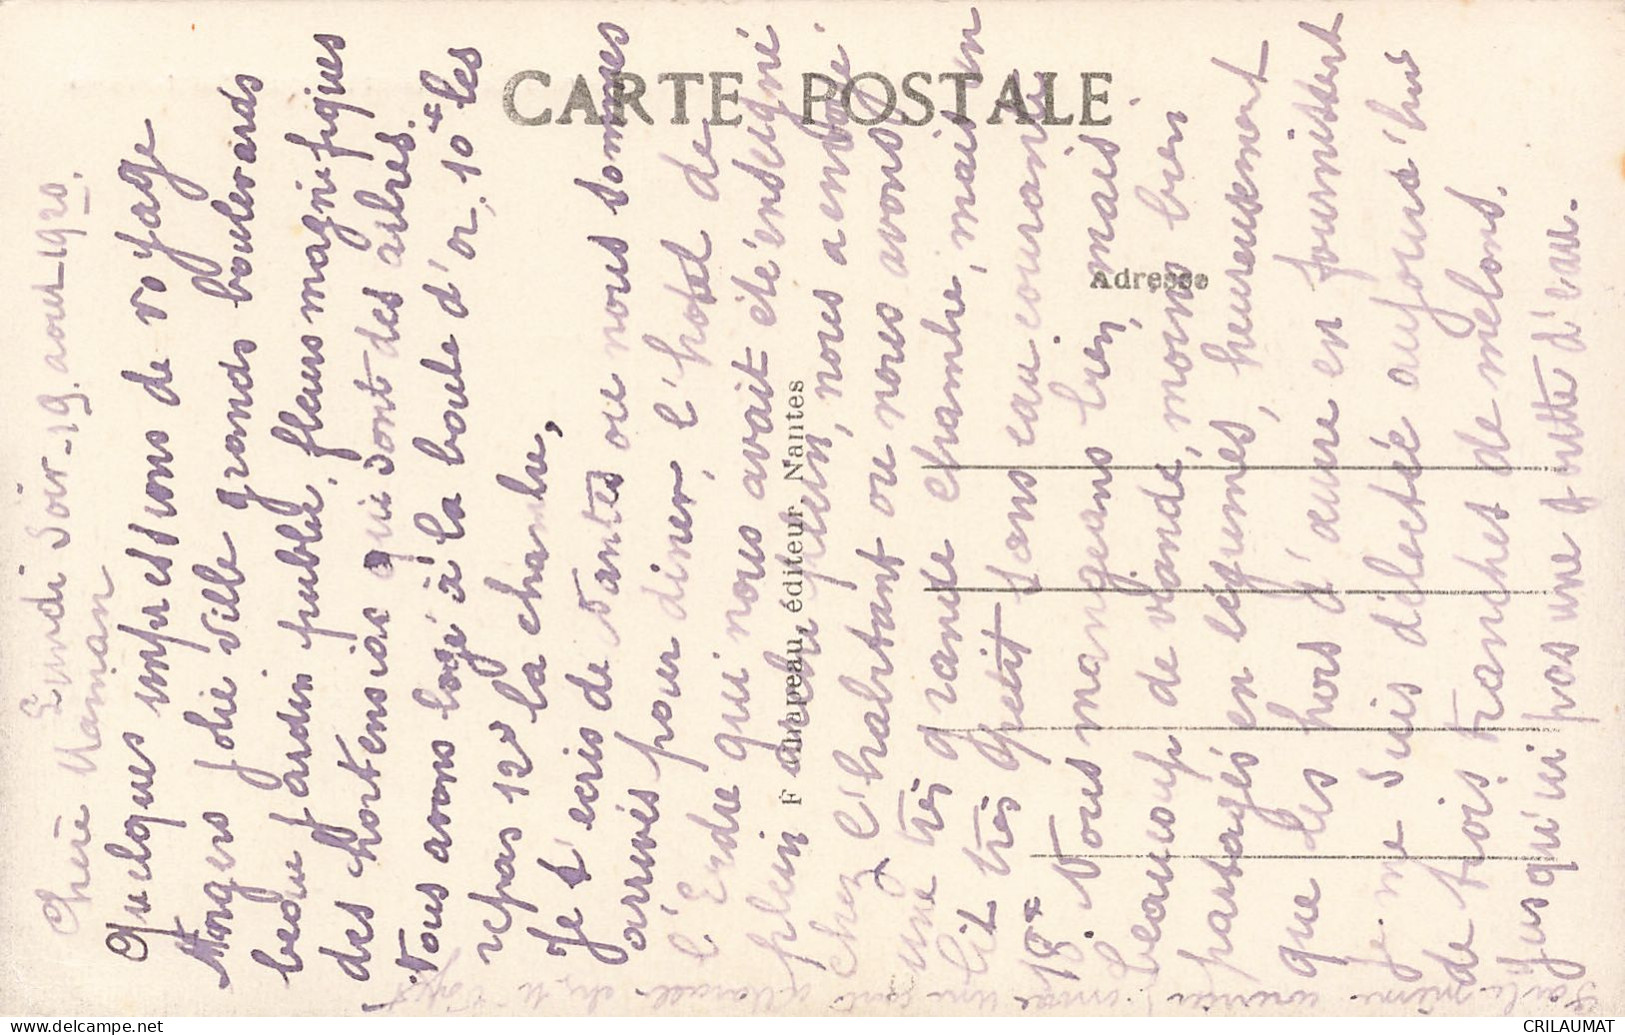 CARTE POSTALE
Adresse
F Chapeau, éditeur Nantes
Lundi soir - 19. aout - 1920.
Chère Maman
Quelques impressions de voyage
Angers jolie ville grands boulevards
beau jardin public, fleurs magnifiques
des hortensias qui sont des arbres.
Nous avons logé à la boule d'or, 10# les
repas 12# la chambre,
Je t'écris de Nantes ou nous sommes
arrivés pour diner, l'hotel de
l'Erdre qui nous avait été enseigné
plein nous a envoyé
chez l'habitant ou nous avons
une très grande chambre, mais un
lit très petit sans eau courante
18#. Nous mangeons bien, mais
beaucoup de viande, moins bien
partagés en légumes, heureusement
que les hors d'œuvre en fournissent
Je me suis délectée aujourd'hui
de trois tranches de melons.
Jusqu'ici pas une goutte d'eau.